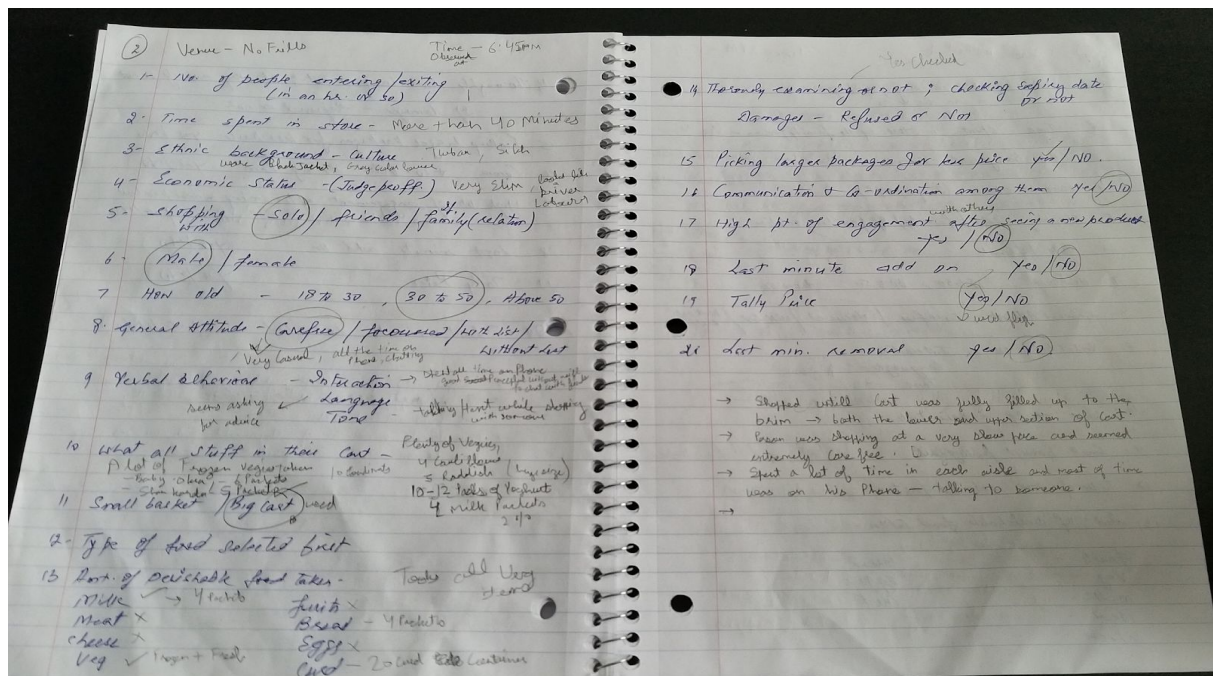 2 Venue - No Frills Time - 6.45PM
Observed at
1- No. of people entering/exiting
(in an hr. or so) 1
2- Time spent in store - More than 40 Minutes
3- Ethnic background - Culture Turban, Sikh
wore Black Jacket, Grey color
4- Economic Status - (Judge proff.) Very Slim
driver
Labour
5- Shopping with - Solo / friends / family (relation)
6- Male / female
7 How old - 18 to 30, 30 to 50, Above 50
8- General Attitude - Carefree / focoused / with list /
without List
Very Casual, all the time on
Phone, chatting
9 Verbal Behaviour - Interaction →
Language
Tone -
seems asking
for advice
talking Hard while shopping
with someone
10 What all stuff in their Cart - Plenty of Vegies,
A lot of Frozen vegies taken
4 Cauliflower
Baby okra - 6 Packets
5 Raddish
5 Packets
10-12 Packs of Yoghurt
11 Small basket / Big Cart used
4 Milk Packets
2 %
12- Type of food selected first
13 Amt. of Perishable food taken - Took all Very
Milk → 4 Packets fruits x
Meat x Bread - 4 Packets
cheese x Eggs x
Veg ✓ Frozen + Fresh Curd - 20 Curd Container
Yes Checked
14 Thoroughly examining or not ; checking expiry date
or not
Damages - Refused or Not
15 Picking larger packages for less price yes / NO.
16 Communication & Co-ordination among them Yes / NO
with others
17 High pt. of engagement after seeing a new product
yes / NO
18 Last minute add on Yes / NO
19 Tally Price Yes / NO
20 Last min. removal yes / NO
→ Shopped untill Cart was fully filled up to the
brim → both the lower and upper section of Cart.
→ Person was shopping at a very slow pace and seemed
extremely care free.
→ Spent a lot of time in each aisle and most of time
was on his Phone - talking to someone.
→